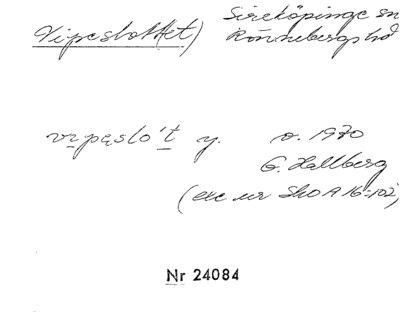 Vipeslottet) Sireköpinge sn
Rönnebergs hd
vipəslo't y. o. 1970
G. Hallberg
(exc ur SkO A 16:102)
Nr 24084